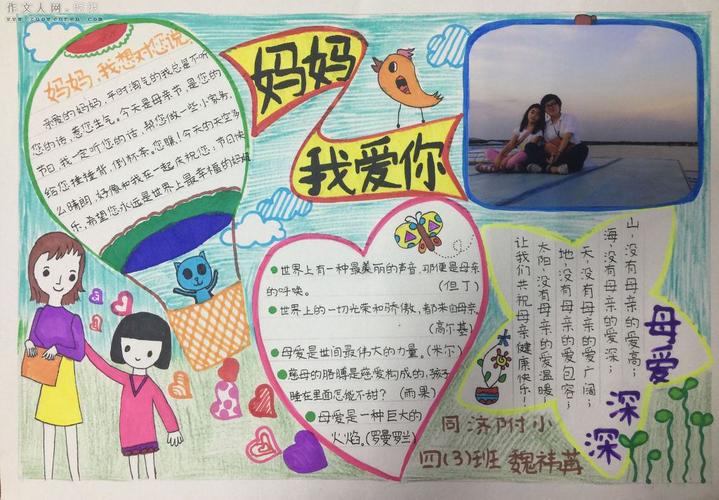 作文人网
妈妈,我想对您说
亲爱的妈妈，平时淘气的我总是不听
您的话，惹您生气。今天是母亲节，是您的
节日，我一定听您的话，帮您做一些小家务，
给您捶捶背，倒杯茶。您瞧！今天的天空多
么晴朗，好像和我在一起庆祝您：节日快
乐，希望您永远是世界上最幸福的妈妈
妈妈
我爱你
世界上有一种最美丽的声音，那便是母亲
的呼唤。
(但丁)
世界上的一切光荣和骄傲，都来自母亲。
(高尔基)
母爱是世间最伟大的力量。(米尔)
慈母的胳膊是慈爱构成的，孩子
睡在里面怎能不甜？(雨果)
母爱是一种巨大的
火焰。(罗曼罗兰)
母爱深深
山，没有母亲的爱高；
海，没有母亲的爱深；
天，没有母亲的爱广阔；
地，没有母亲的爱包容；
太阳，没有母亲的爱温暖；
让我们共祝母亲健康快乐！
同济附小
四(3)班 魏祎